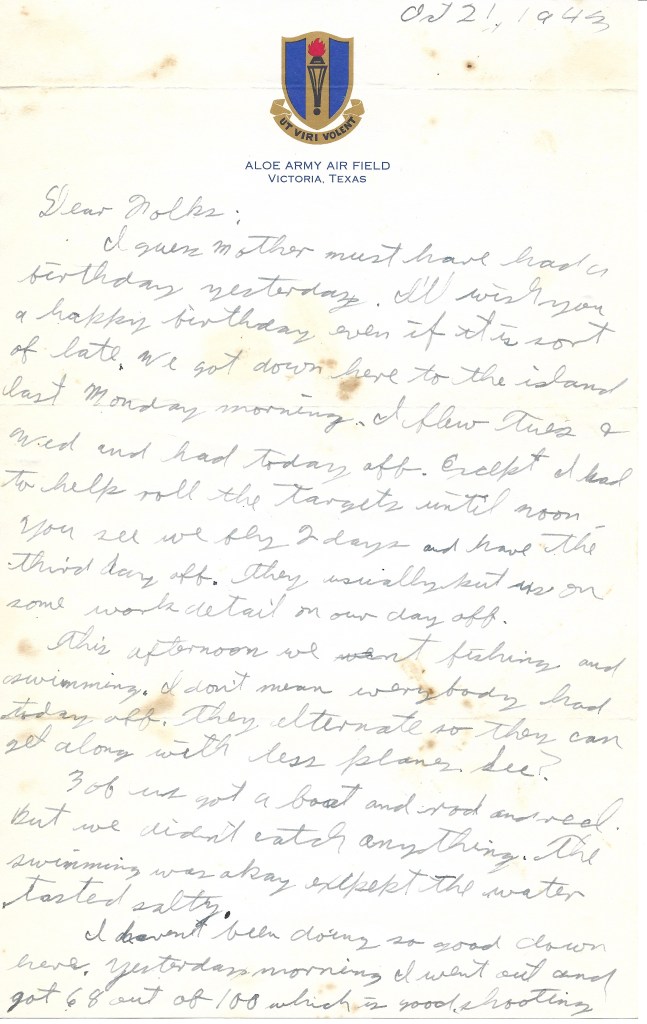 Oct 21, 1943
UT VIRI VOLENT
ALOE ARMY AIR FIELD
VICTORIA, TEXAS
Dear Folks:
I guess Mother must have had a
birthday yesterday. I'll wish you
a happy birthday even if it is sort
of late. We got down here to the island
last Monday morning. I flew Tues &
Wed and had today off. Except I had
to help roll the targets until noon.
You see we fly 2 days and have the
third day off. They usually put us on
some work detail on our day off.
This afternoon we went fishing and
swimming. I don't mean everybody had
today off. They alternate so they can
get along with less planes. See?
3 of us got a boat and rod and reel.
But we didn't catch anything. The
swimming was okay exkpekt the water
tasted salty.
I haven't been doing so good down
here. Yesterday morning I went out and
got 68 out of 100 which is good shooting